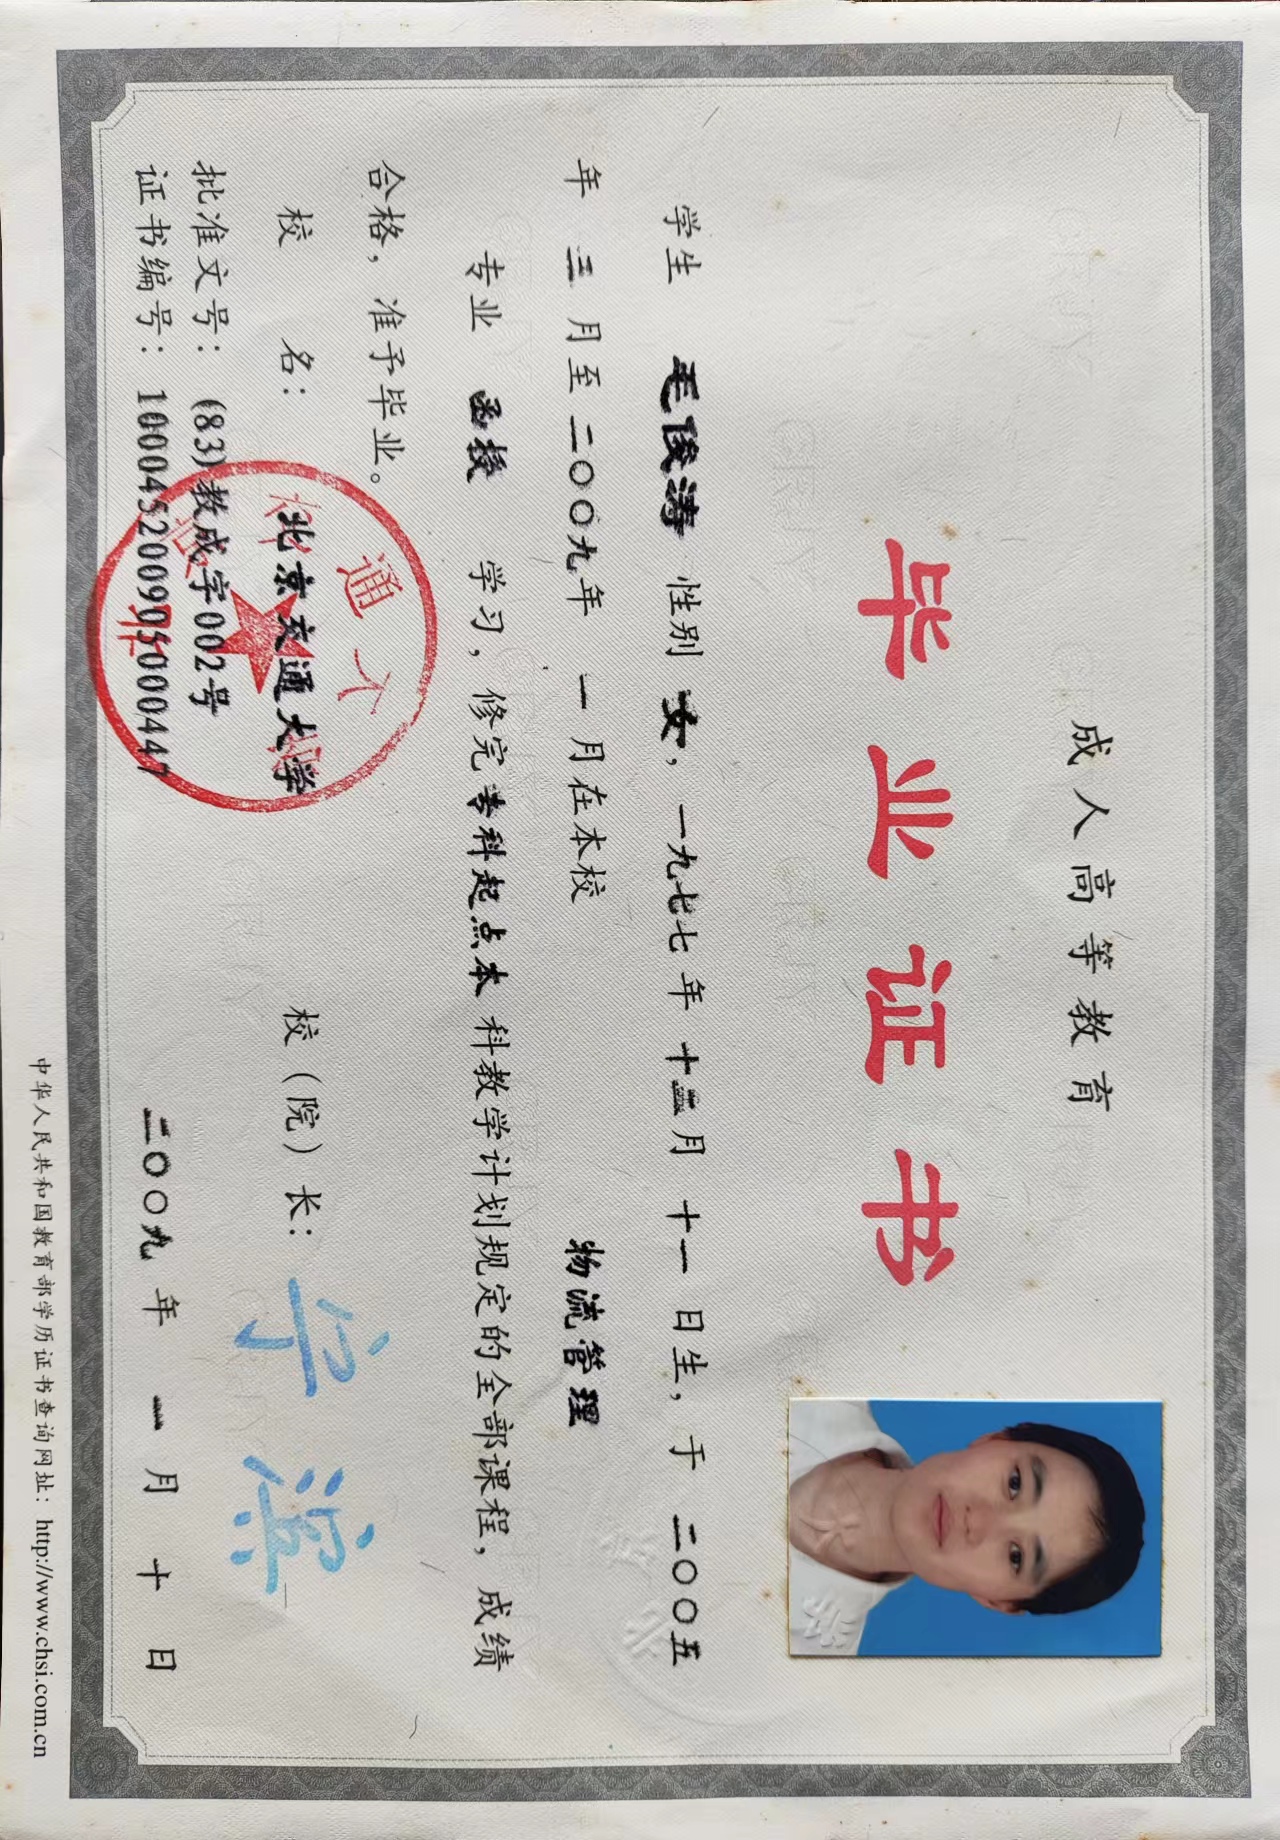 成人高等教育
毕业证书
学生 毛俊涛 性别 女，一九七七年 十二月 十一日生，于 二〇〇五
年 三月至二〇〇九年 一月在本校 物流管理
专业 函授 学习，修完专科起点本科教学计划规定的全部课程，成绩
合格，准予毕业。
校 名：北京交通大学 校（院）长：宁滨
批准文号：(83)教成字002号
证书编号：100045200905000447 二〇〇九 年 一 月 十 日
中华人民共和国教育部学历证书查询网址：http://www.chsi.com.cn